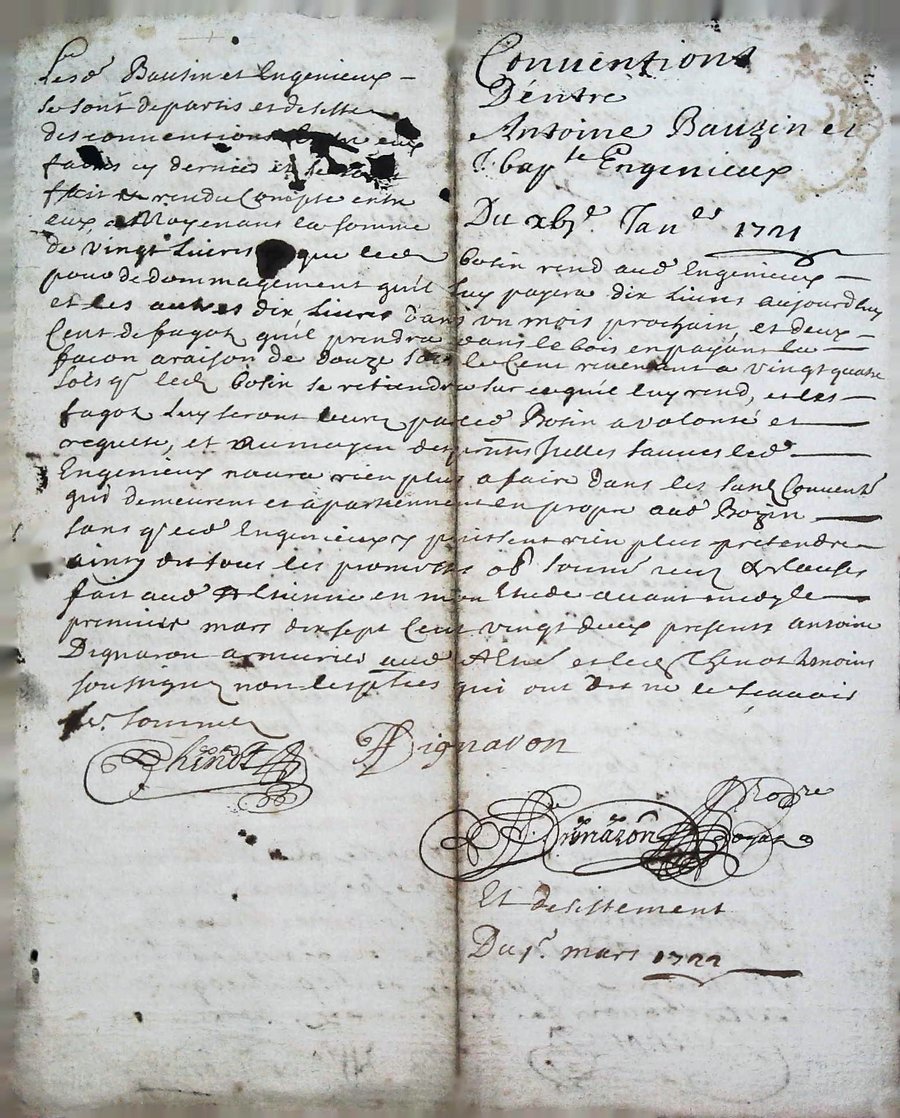 Conventions
Dentre
Antoine Bauzin et
J. bap.te Engenieux
Du xbe. Janer 1721
Lesd Bautin et Engenieux
se sont departis et desiste
des conventions entre eux
faites cy dernier et se sont
rendu Compte entre
eux, Moyenant la somme
de vingt Livres que led Botin rend aud Engenieux
pour dedommagement qu'il luy payera dix Livres aujourdhuy
et les autres dix Livres dans un mois prochain, et deux
Cent de fagot qu'il prendra dans le bois en payant la
facon a raison de douze sols le Cent revenant a vingt quatre
sols q. led Botin se retiendra sur ce quil luy rend, et les
fagot luy seront par led Botin a volonte et
requeste, et au moyen des pntes led
Engenieux naura rien plus a faire dans les Convent
qui demeurent et apartiennent en propre aud Bozin
sans q. led Engenieux y puissent rien plus pretendre
ainsy dit tous les promettes ob. soumi renon & Clauses
fait aud St Etienne en mon Etude avant midy le
premier mars dix sept Cent vingt deux presents antoine
Dignaron armurier aud St Etne et led Thenot temoins
soussignez non les pties qui ont dit ne le scavoir
de. sommes
Thenot
Dignaron
Dignaron
Et desistement
Du 1r. mars 1722